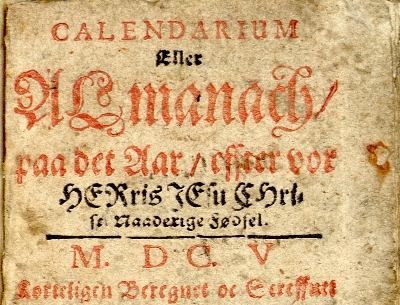 CALENDARIUM
Eller
ALmanach/
paa det Aar/ effter vor
HERris JEsu CHri-
sti Naaderige Fødsel.
M. D C. V
Korteligen Beregnet oc